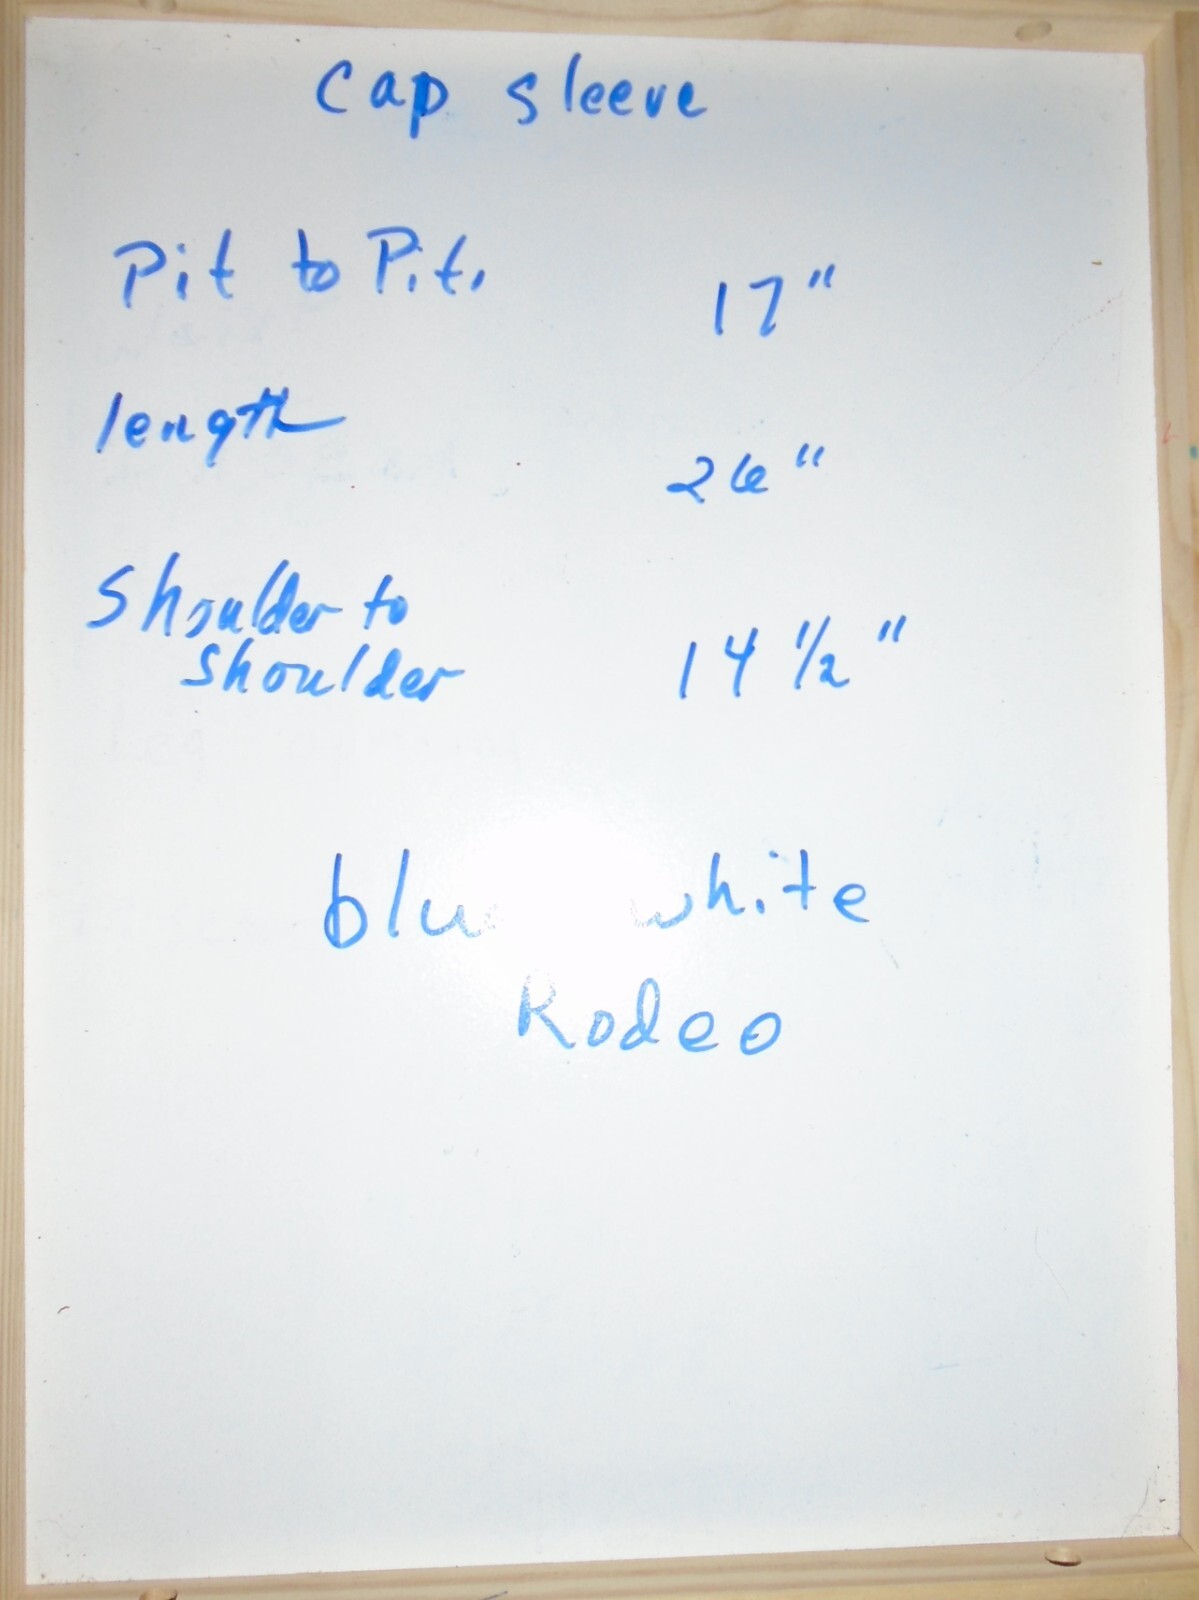 cap sleeve
Pit to Pit. 17"
length 26"
shoulder to
shoulder 14 1/2"
blue white
Rodeo